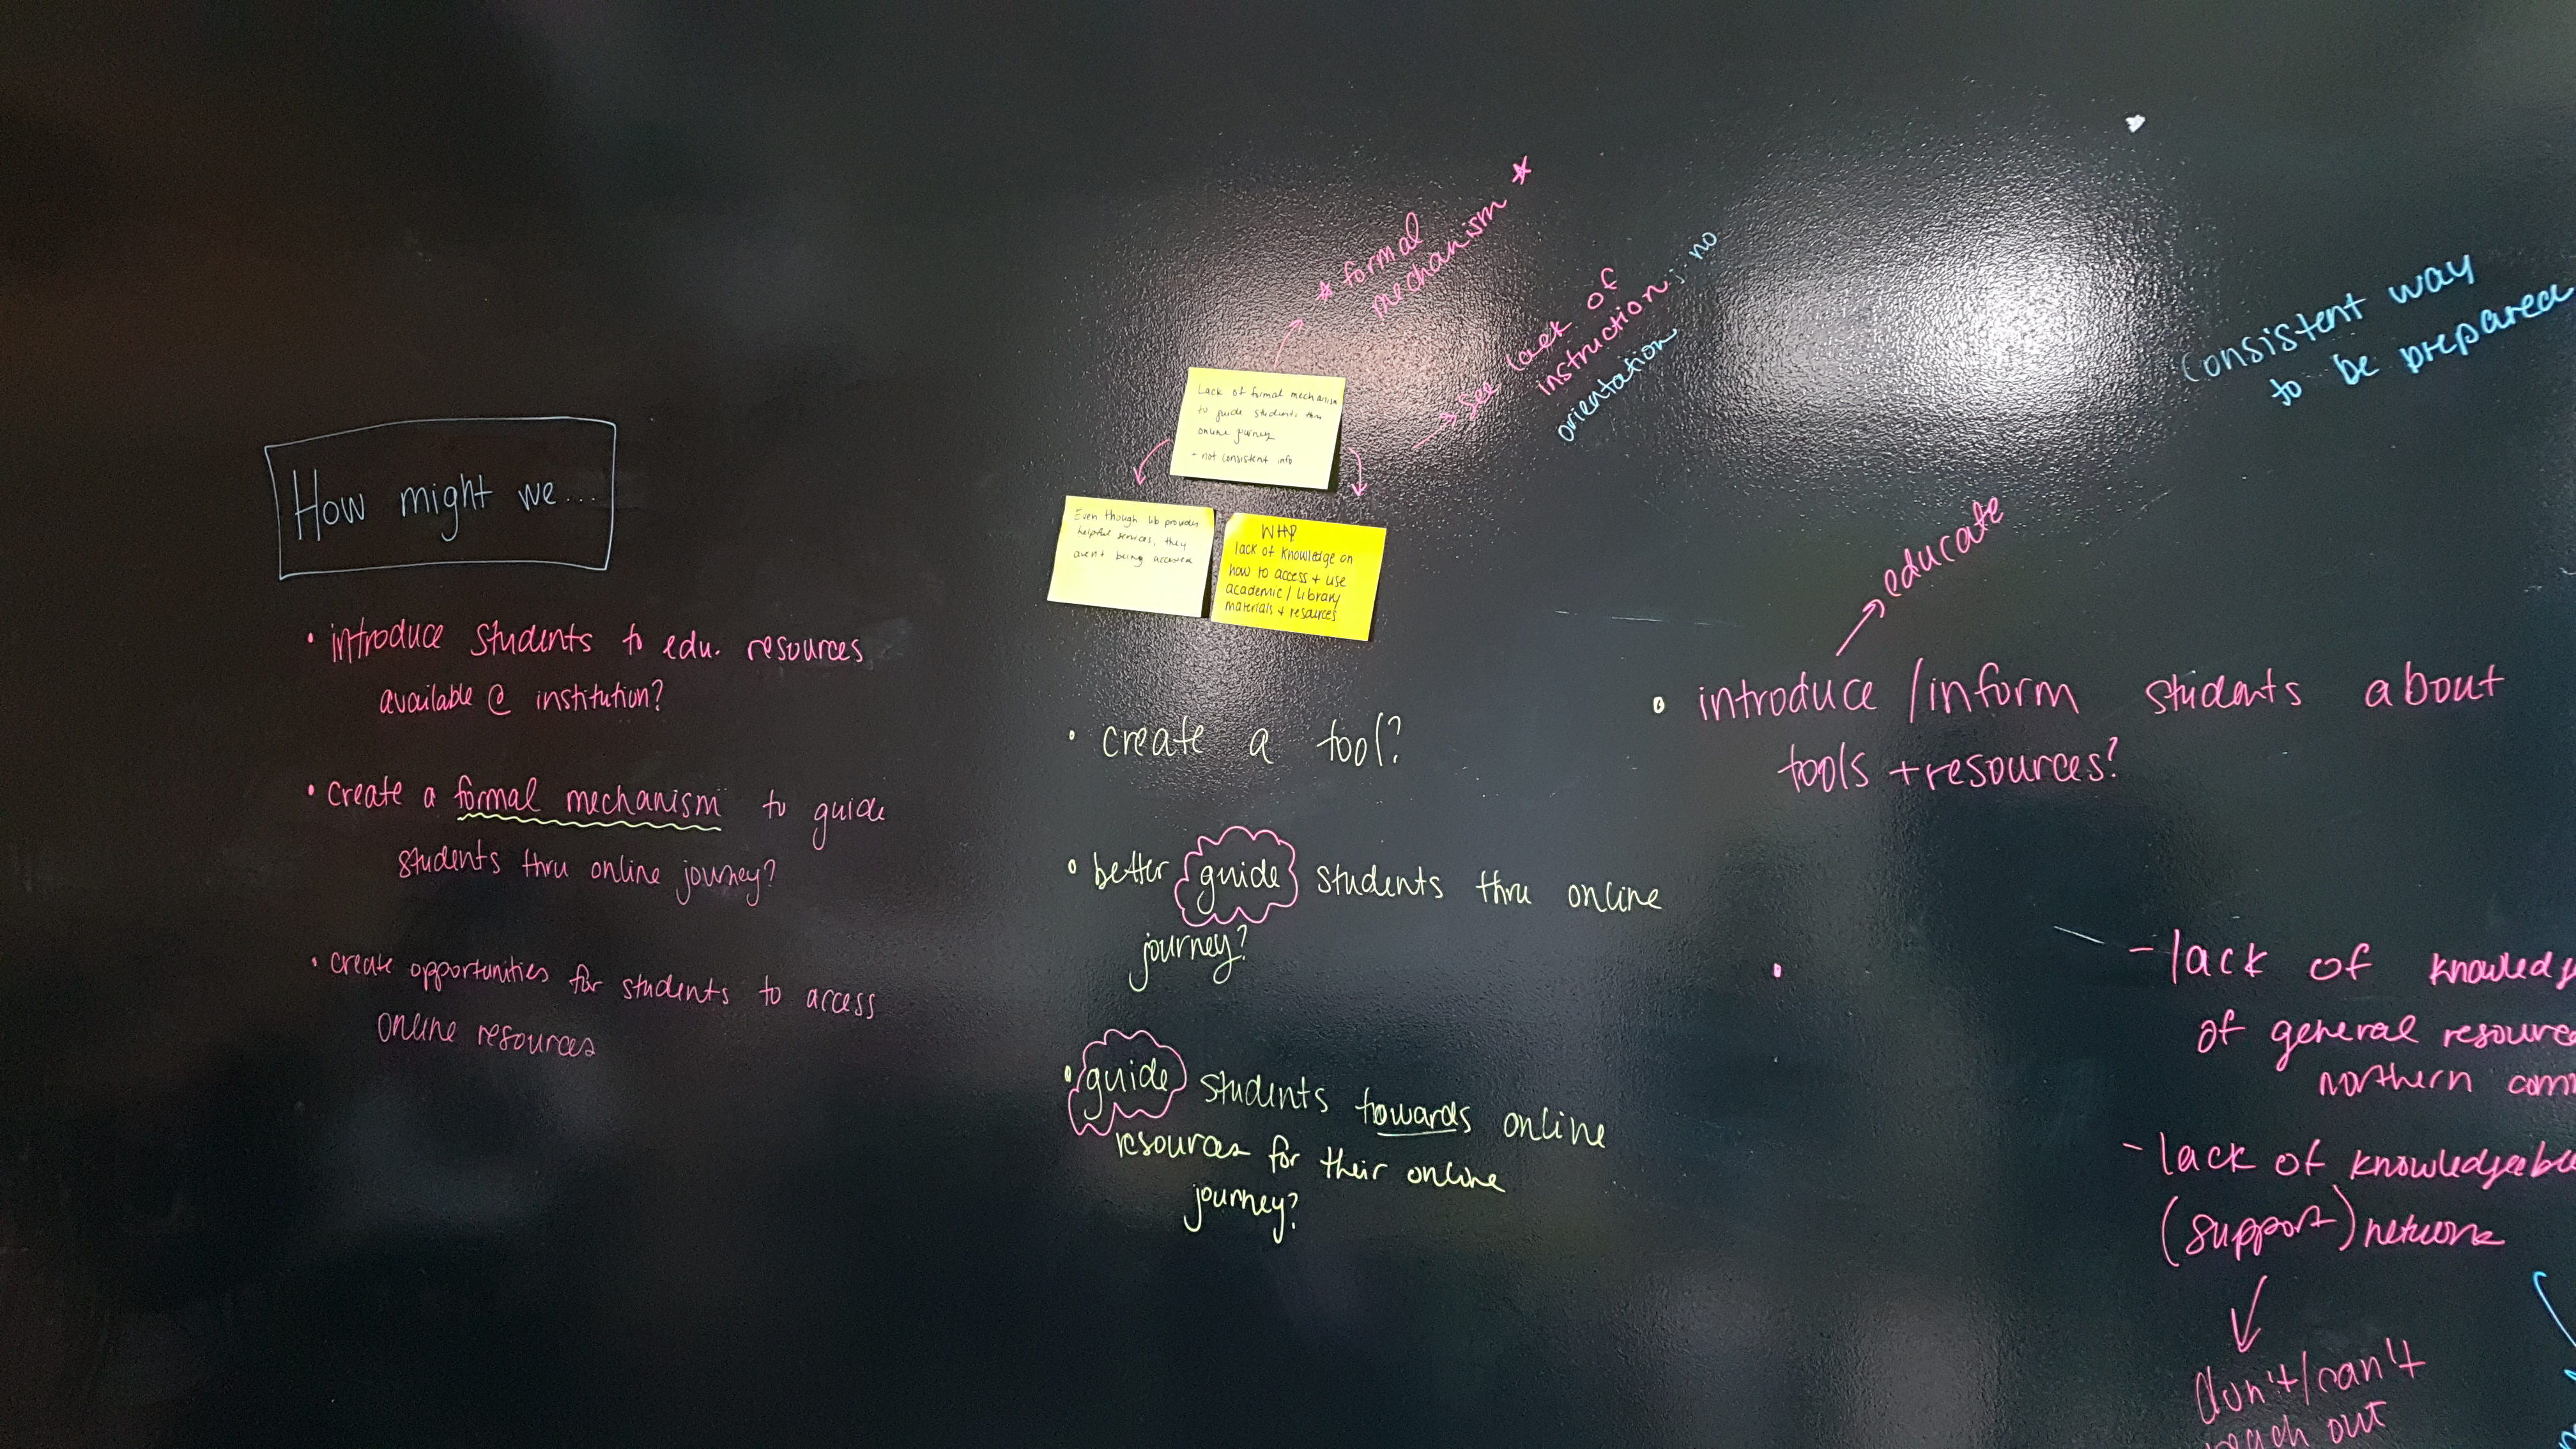 How might we...
• introduce students to edu. resources
available @ institution?
• create a formal mechanism to guide
students thru online journey?
• create opportunities for students to access
online resources
* formal
mechanism *
see lack of
instruction; no
orientation
Lack of formal mechanism
to guide students thru
online journey
- not consistent info
Even though lib provides
helpful services, they
aren't being accessed
lack of knowledge on
how to access + use
academic / library
materials + resources
• create a tool?
• better guide students thru online
journey?
• guide students towards online
resources for their online
journey?
Consistent way
to be prepared
educate
• introduce / inform students about
tools + resources?
•
- lack of
of general
northern
- lack of
(support) network
don't/can't
reach out